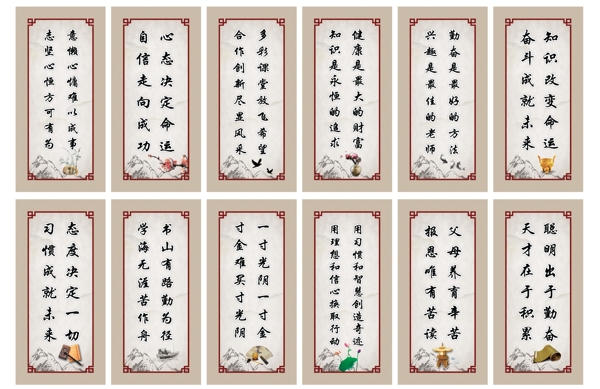 意懒心慵难以成事
志坚心恒方可有为
心态决定命运
自信走向成功
多彩课堂放飞希望
合作创新尽显风采
健康是最大的财富
知识是永恒的追求
勤奋是最好的方法
兴趣是最佳的老师
知识改变命运
奋斗成就未来
态度决定一切
习惯成就未来
书山有路勤为径
学海无涯苦作舟
一寸光阴一寸金
寸金难买寸光阴
用习惯和智慧创造奇迹
用理想和信心换取行动
父母养育辛苦
报恩唯有苦读
聪明出于勤奋
天才在于积累